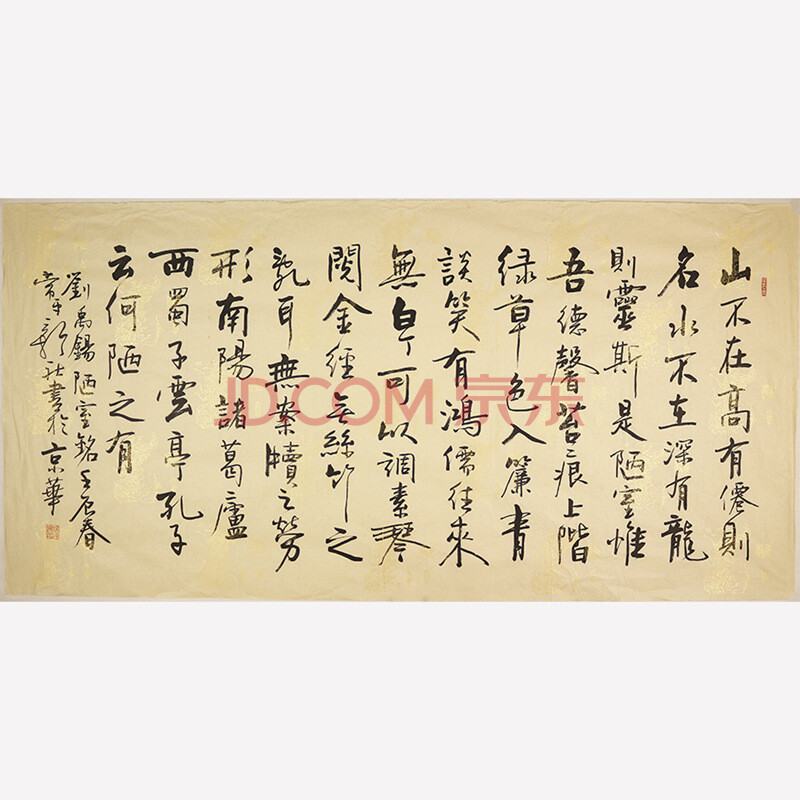 山不在高有僊則
名水不在深有龍
則靈斯是陋室惟
吾德馨苔痕上階
緑草色入簾青
談笑有鴻儒往來
無白丁可以調素琴
閱金經无絲竹之
亂耳無案牘之勞
形南陽諸葛廬
西蜀子雲亭孔子
云何陋之有
劉禹錫陋室銘壬辰春
書於京華
JD.COM 京东